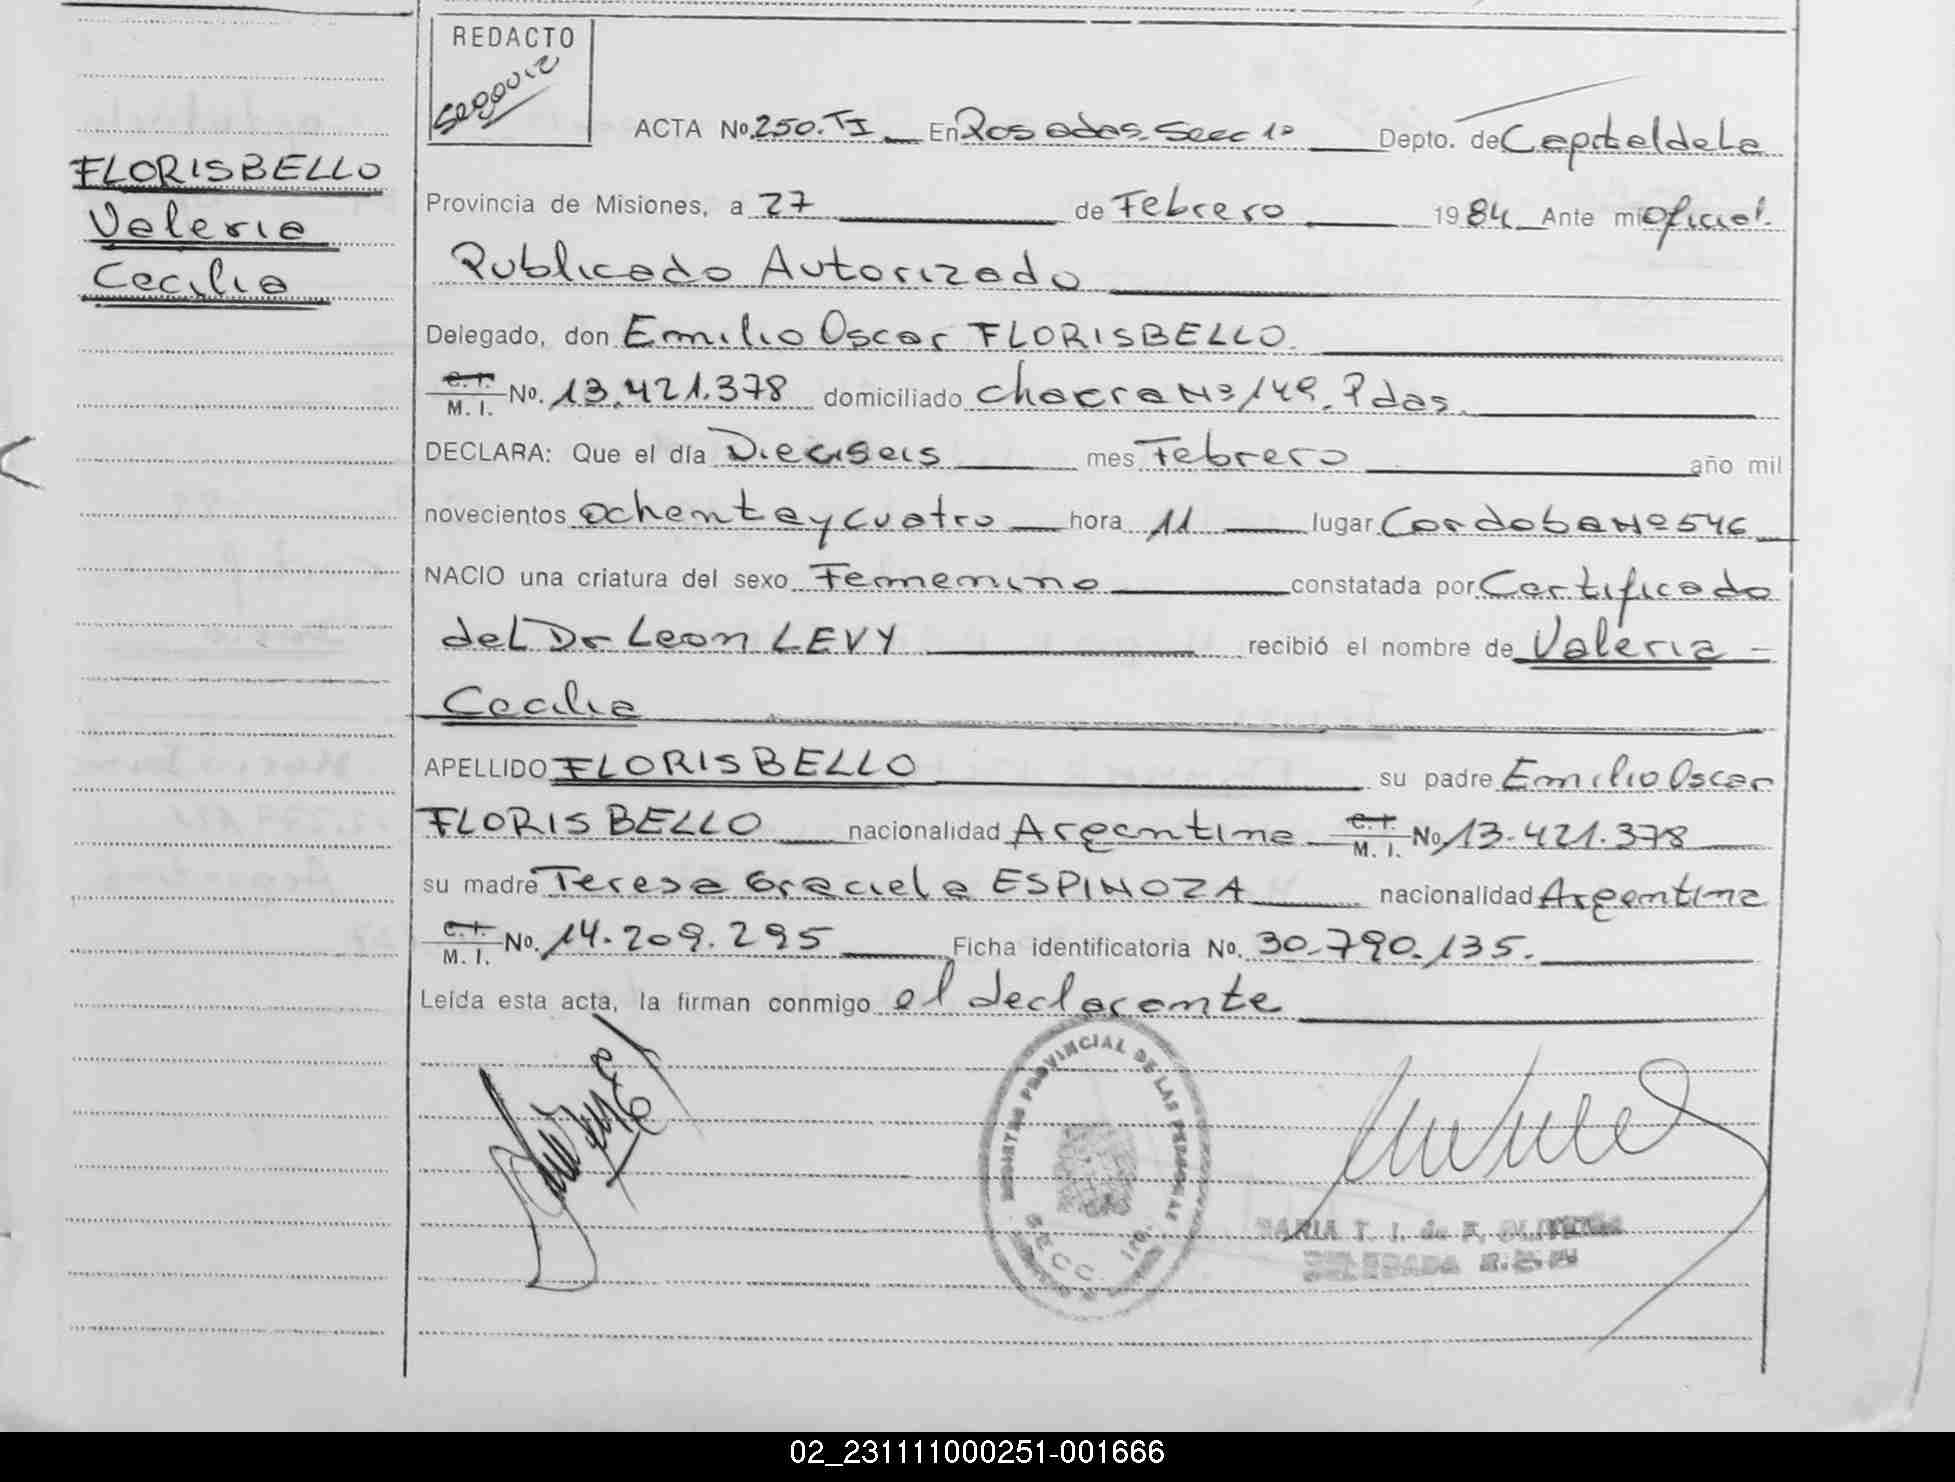 REDACTO
Segovia
ACTA No. 250. TI En Posadas. Secc 1º Depto. de Capital de La
FLORISBELLO
Valeria
Cecilia
Provincia de Misiones, a 27 de Febrero 1984 Ante mi Oficial
Publicado Autorizado
Delegado, don Emilio Oscar FLORISBELLO.
C. I.
M. I. No. 13.421.378 domiciliado Chacra Nº 149. Pdas.
DECLARA: Que el día Dieciseis mes Febrero año mil
novecientos Ochenta y Cuatro hora 11 lugar Cordoba Nº 546
NACIO una criatura del sexo Femenino constatada por Certificado
del Dr Leon LEVY recibió el nombre de Valeria -
Cecilia
APELLIDO FLORISBELLO su padre Emilio Oscar
FLORISBELLO nacionalidad Argentina C. I. M. I. No 13.421.378
su madre Teresa Graciela ESPINOZA nacionalidad Argentina
C. I.
M. I. No. 14.209.295 Ficha identificatoria No. 30.790.135.
Leída esta acta, la firman conmigo el declarante
REGISTRO PROVINCIAL DE LAS PERSONAS
SECC. 1ra.
MARIA T. I. de F.
DELEGADA
02_231111000251-001666